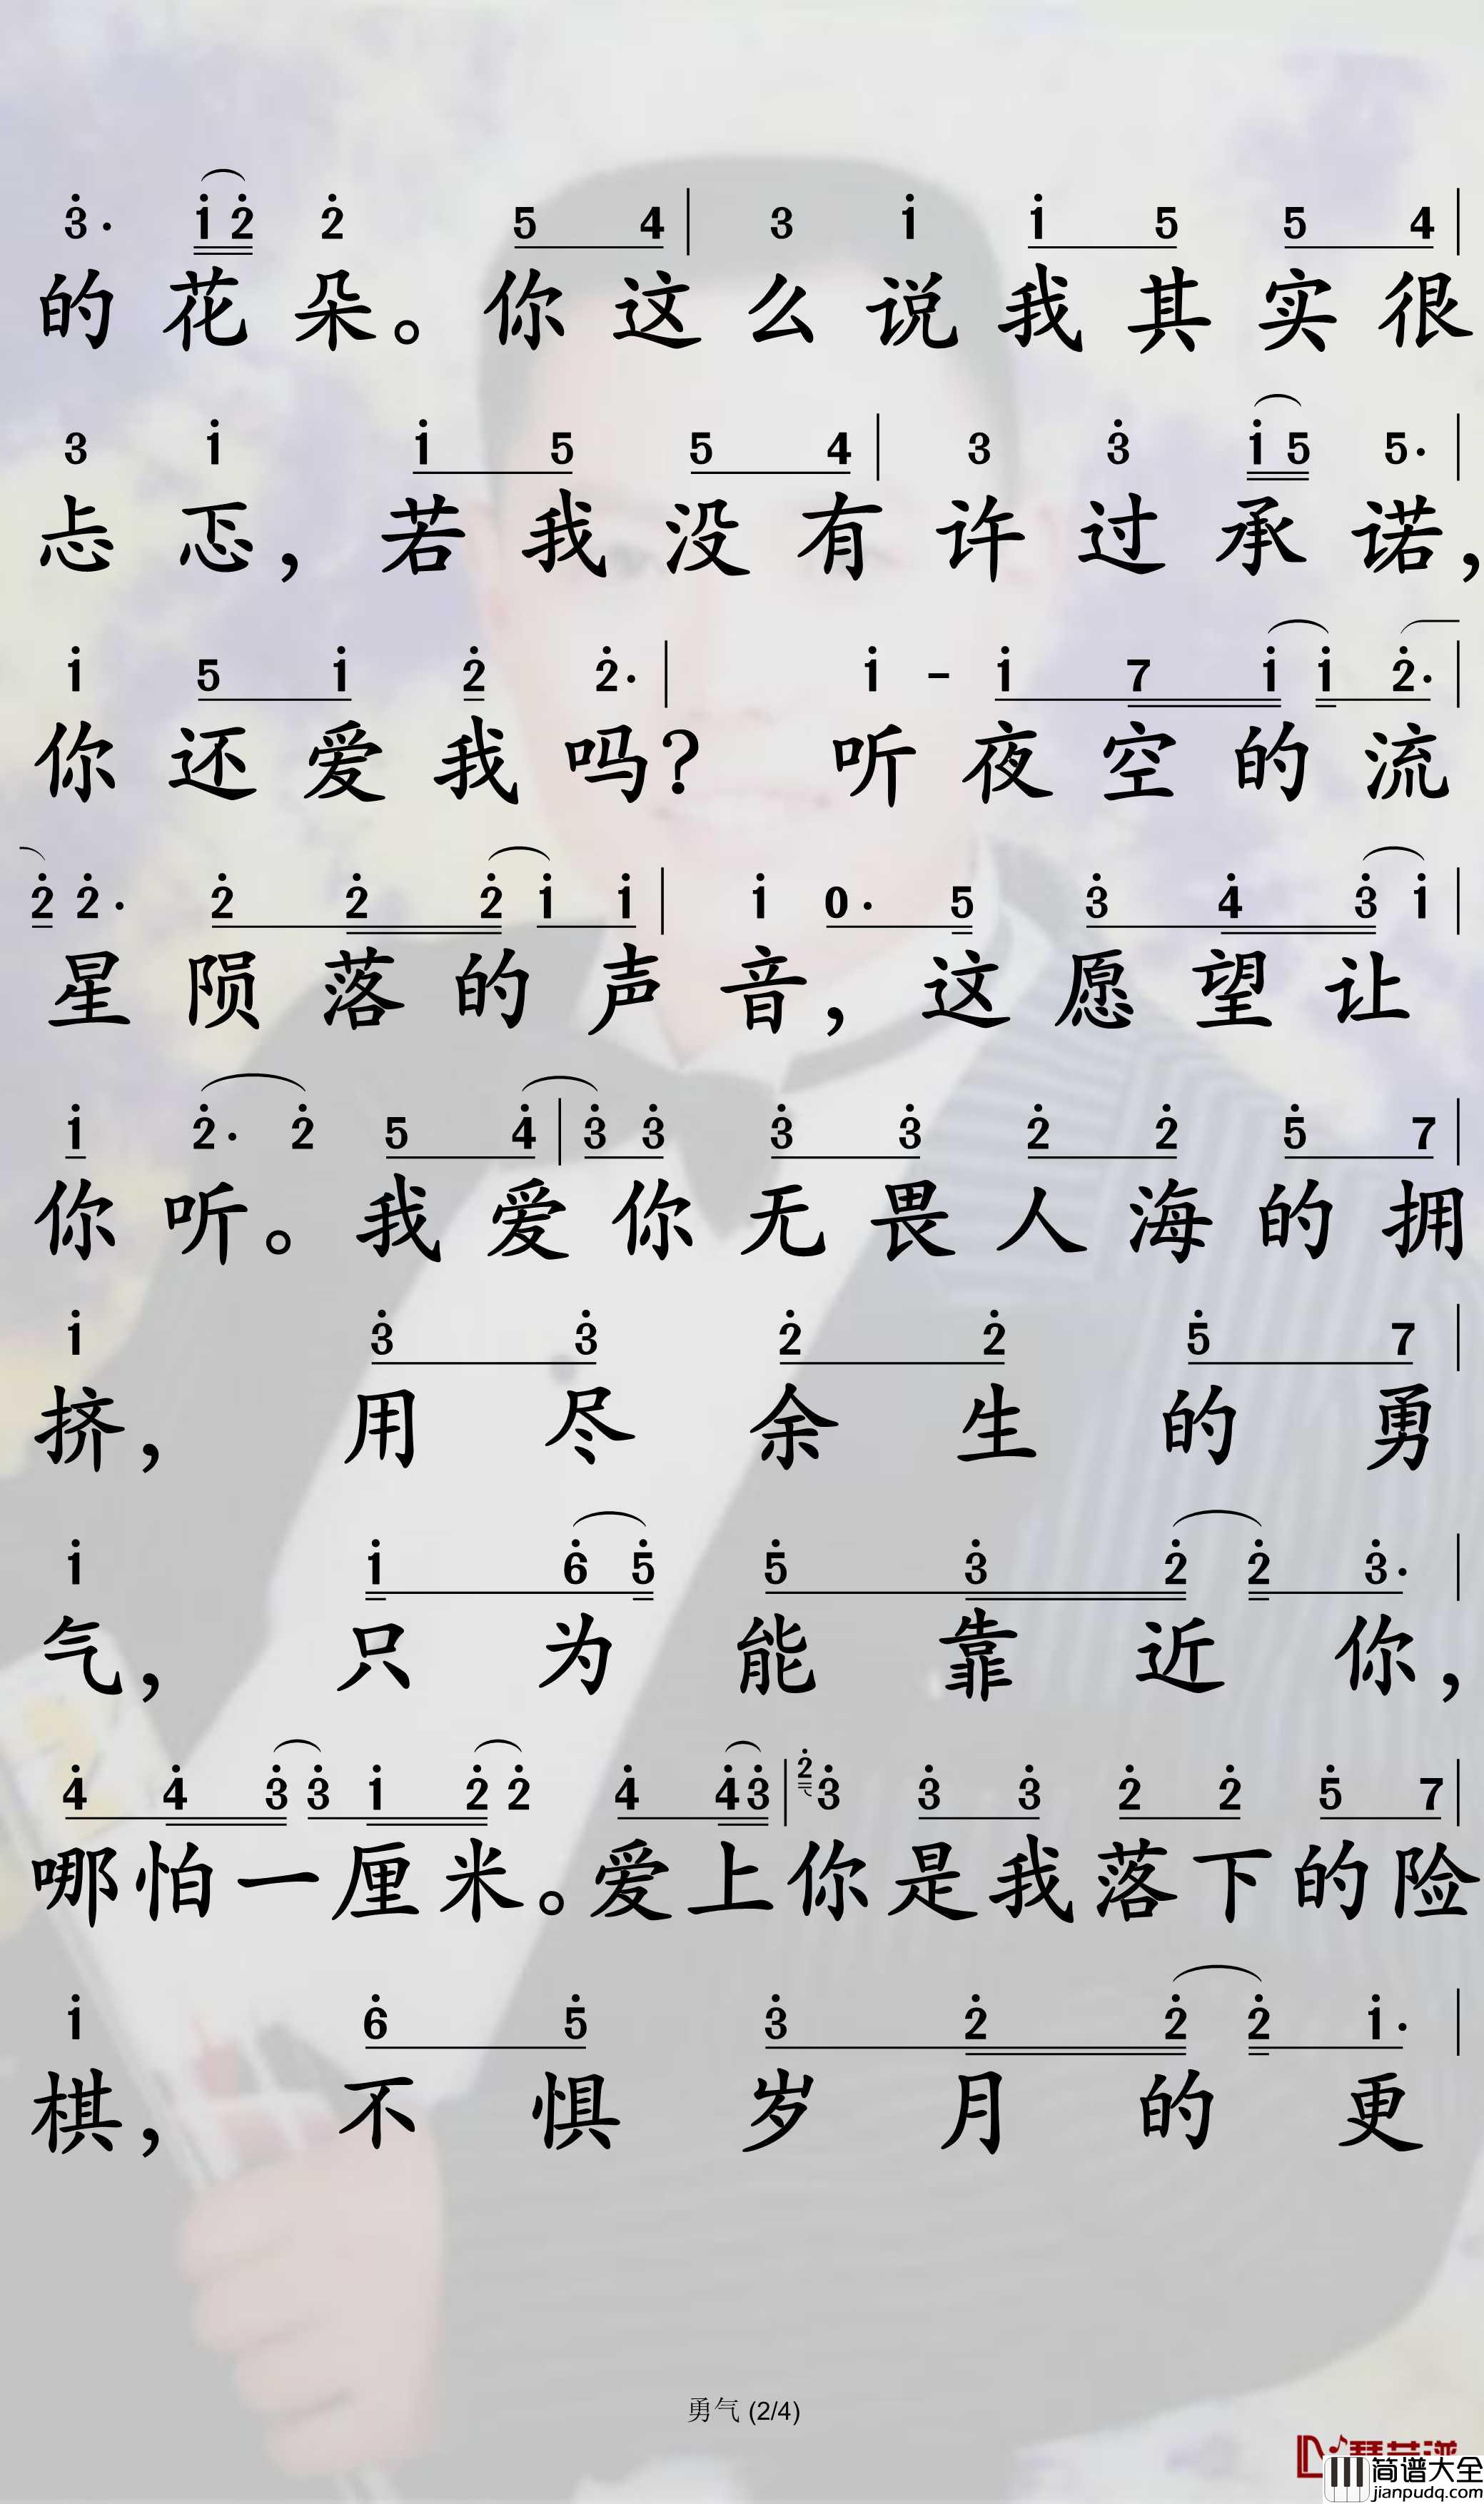 3· 1 2 2 5 4 | 3 1 1 5 5 4 |
的花朵。你这么说我其实很
3 1 1 5 5 4 | 3 3 1 5 5· |
忐忑，若我没有许过承诺，
1 5 1 2 2· | 1 - 1 7 1 1 2· |
你还爱我吗？ 听夜空的流
2 2· 2 2 2 1 1 | 1 0· 5 3 4 3 1 |
星陨落的声音，这愿望让
1 2· 2 5 4 | 3 3 3 3 2 2 5 7 |
你听。我爱你无畏人海的拥
1 3 3 2 2 5 7 |
挤，用尽余生的勇
1 1 6 5 5 3 2 2 3· |
气，只为能靠近你，
4 4 3 3 1 2 2 4 4 3 | 2 3 3 3 2 2 5 7 |
哪怕一厘米。爱上你是我落下的险
1 6 5 3 2 2 2 1· |
棋，不惧岁月的更
勇气 (2/4)
简谱大全
jianpudq.com